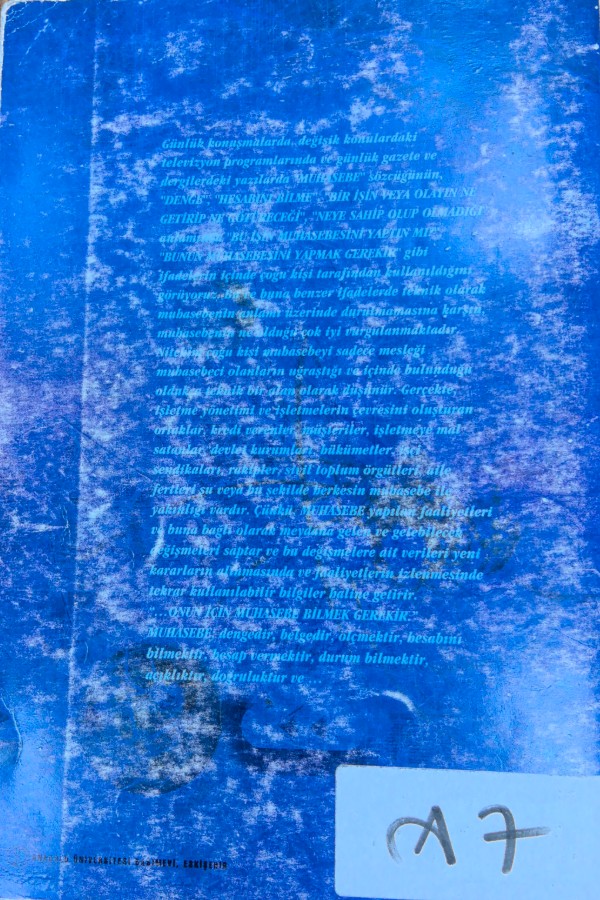 Günlük konuşmalarda, değişik konulardaki
televizyon programlarında ve günlük gazete ve
dergilerdeki yazılarda "MUHASEBE" sözcüğünün,
"DENGE", "HESABINI BİLME", "BİR İŞİN VEYA OLAYIN NE
GETİRİP NE GÖTÜRECEĞİ", "NEYE SAHİP OLUP OLMADIĞI"
"BU İŞİN MUHASEBESİNİ YAPTIN MI?",
"BUNUN MUHASEBESİNİ YAPMAK GEREKİR" gibi
ifadelerin içinde çoğu kişi tarafından kullanıldığını
görüyoruz. buna benzer ifadelerde teknik olarak
muhasebenin anlamı üzerinde durulmamasına karşın,
muhasebenin ne olduğu çok iyi vurgulanmaktadır.
Nitekim çoğu kişi muhasebeyi sadece mesleği
muhasebeci olanların uğraştığı ve içinde bulunduğu
oldukça teknik bir alan olarak düşünür. Gerçekte,
işletme yönetimi ve işletmelerin çevresini oluşturan
ortaklar, kredi verenler, müşteriler, işletmeye mal
satanlar, devlet kurumları, hükümetler, işçi
sendikaları, rakipler, sivil toplum örgütleri, aile
fertleri şu veya bu şekilde herkesin muhasebe ile
yakınlığı vardır. Çünkü, MUHASEBE yapılan faaliyetleri
ve buna bağlı olarak meydana gelen ve gelebilecek
değişmeleri saptar ve bu değişmelere ait verileri yeni
kararların alınmasında ve faaliyetlerin izlenmesinde
tekrar kullanılabilir bilgiler haline getirir.
...ONUN İÇİN MUHASEBE BİLMEK GEREKİR.
MUHASEBE, dengedir, belgedir, ölçmektir, hesabını
bilmektir, hesap vermektir, durum bilmektir,
açıklıktır, doğruluktur ve
ÜNİVERSİTESİ BASIMEVİ, ESKİŞEHİR
A7